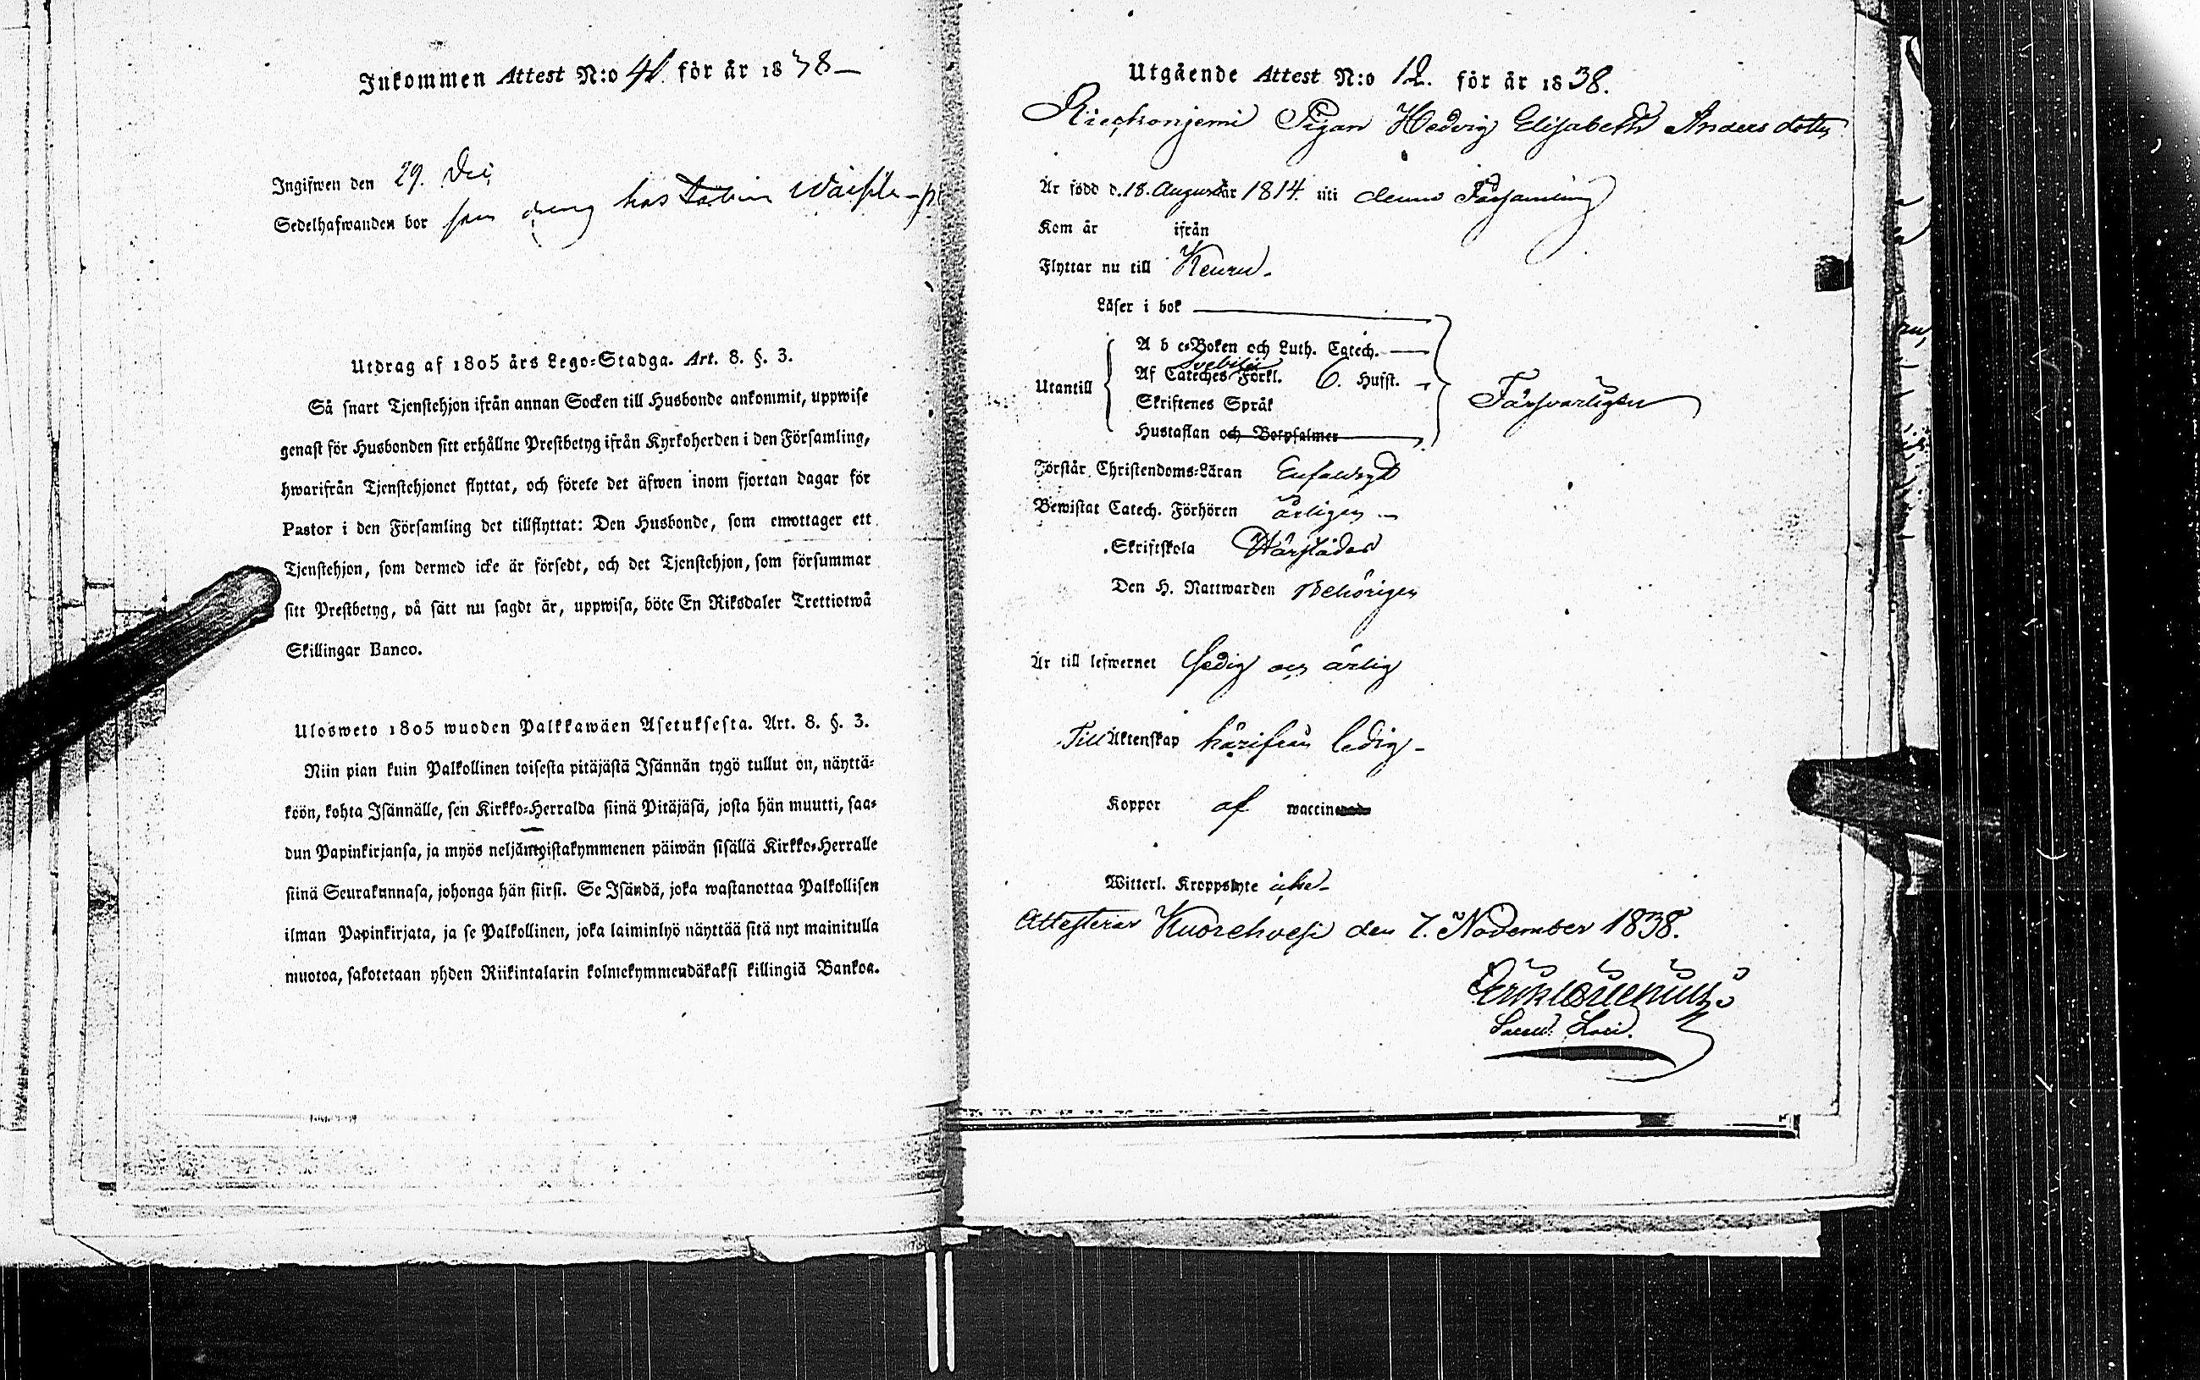 Inkommen Attest N:o 41. för år 1838 —
Ingifwen den 29. Dec.
Sedelhafwanden bor som dreng hos
Utdrag af 1805 års Lego-Stadga. Art. 8. §. 3.
Så snart Tjenstehjon ifrån annan Socken till Husbonde ankommit, uppwise
genast för Husbonden sitt erhållne Prestbetyg ifrån Kyrkoherden i den Församling,
hwarifrån Tjenstehjonet flyttat, och förete det äfwen inom fjortan dagar för
Pastor i den Församling det tillflyttat: Den Husbonde, som emottager ett
Tjenstehjon, som dermed icke är försedt, och det Tjenstehjon, som försummar
sitt Prestbetyg, på sätt nu sagdt är, uppwisa, böte En Riksdaler Trettiotwå
Skillingar Banco.
Ulosweto 1805 wuoden Palkkawäen Asetuksesta. Art. 8. §. 3.
Niin pian kuin Palkollinen toisesta pitäjästä Isännän tygö tullut on, näyttä-
köön, kohta Isännälle, sen Kirkko-Herralda siinä Pitäjäsä, josta hän muutti, saa-
dun Papinkirjansa, ja myös neljäntoistakymmenen päiwän sisällä Kirkko-Herralle
siinä Seurakunnasa, johonga hän siirsi. Se Isändä, joka wastanottaa Palkollisen
ilman Papinkirjata, ja se Palkollinen, joka laiminlyö näyttää sitä nyt mainitulla
muotoa, sakotetaan yhden Riikintalarin kolmekymmendäkaksi killingiä Bankoa.
Utgående Attest N:o 12. för år 1838.
Riechonjemi Pigan Hedvig Elisabeth Andersdotter
Är född d. 18. Augusti år 1814. uti denna Församling
Kom år ifrån
Flyttar nu till Keuru.
Läser i bok
A b c-Boken och Luth. Catech.
Svebilii
Af Cateches Förkl. 6. Hufst.
Utantill
Skriftenes Språk
Försvarligen
Hustaflan och Botpsalmer
Förstår Christendoms-Läran Enfaldigt
Bewistat Catech. Förhören årligen —
Skriftskola
Den H. Nattwarden Behörigen
Är till lefwernet sedig och ärlig
Till Äktenskap härifrån ledig —
Koppor af waccine
Witterl. Kroppslyte icke —
Attesterar Kuorehvesi den 7. November 1838.